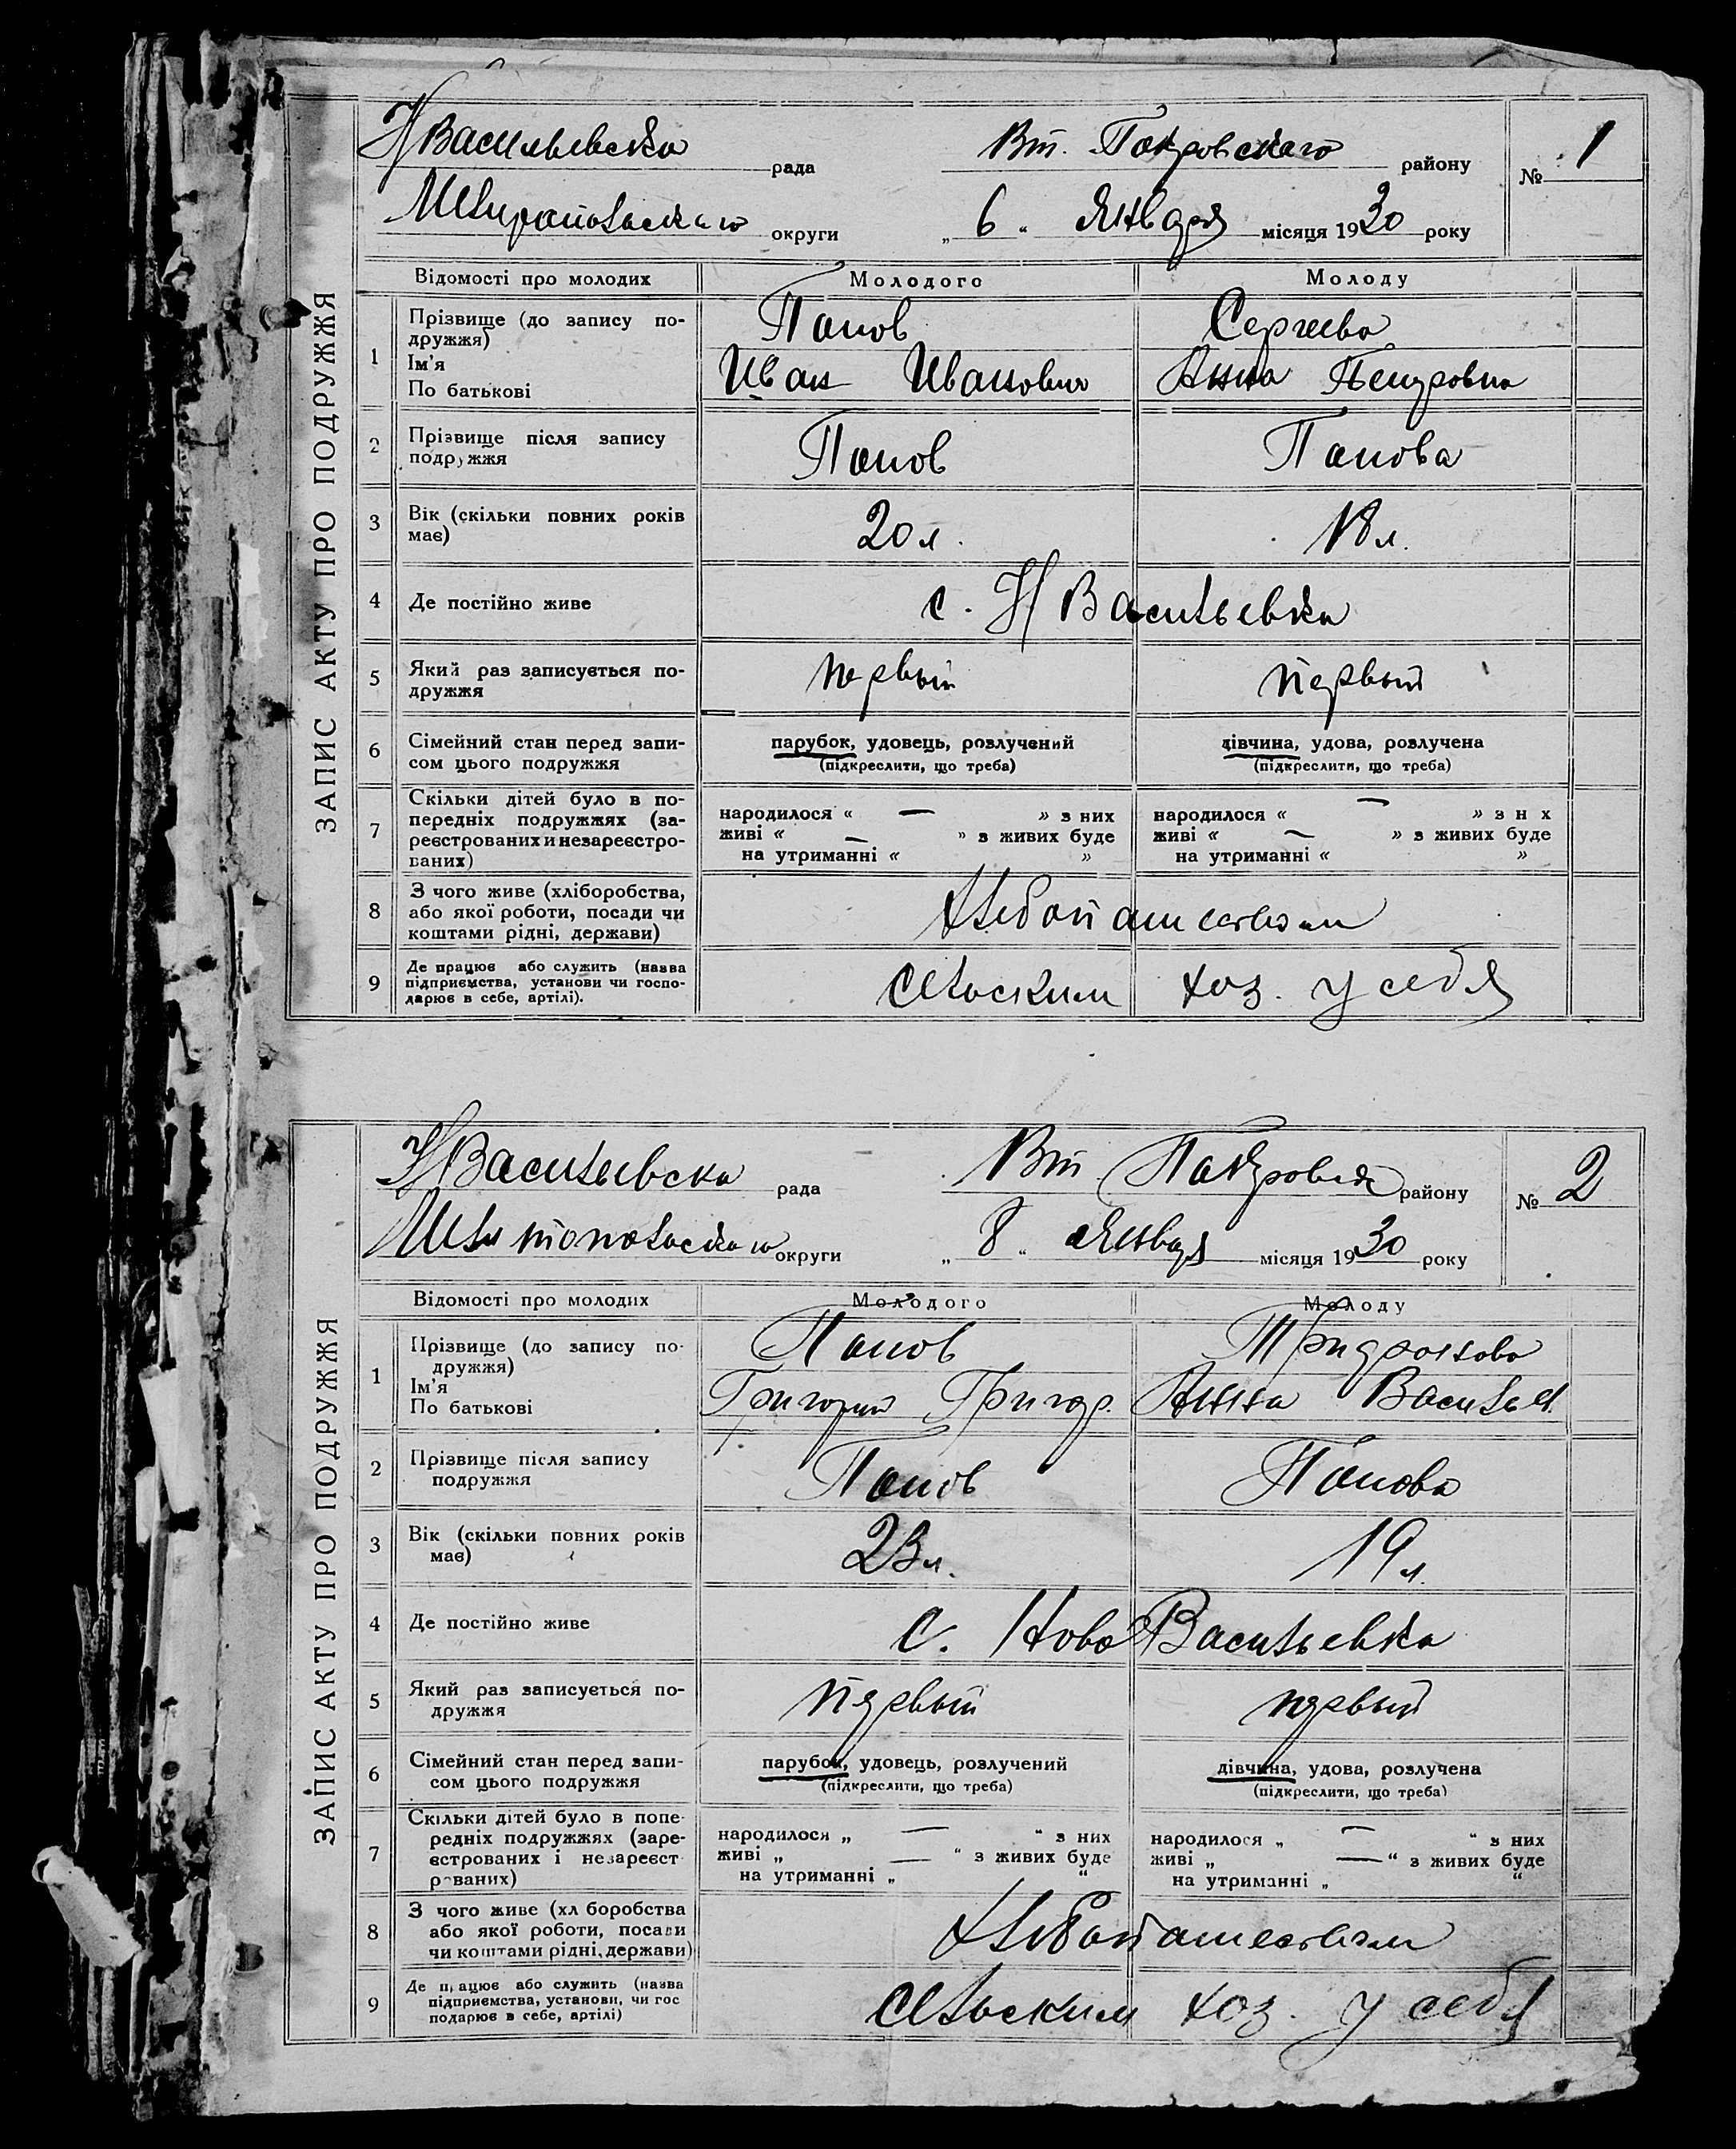 ЗАПИС АКТУ ПРО ПОДРУЖЖЯ
НВасильевска рада
Вт. Покровского району
№ 1
округи
„ 6 “ Января місяця 1930 року
Відомості про молодих Молодого Молоду
1 Прізвище (до запису по-
дружжя)
Ім'я
По батькові
Попов
Иван Иванович
Сергеева
Анна Петровна
2 Прізвище після запису
подружжя
Попов Попова
3 Вік (скільки повних років
має)
20 л. 18 л.
4 Де постійно живе с. Н Васильевка
5 Який раз записується по-
дружжя
первый первый
6 Сімейний стан перед запи-
сом цього подружжя
парубок, удовець, розлучений
(підкреслити, що треба)
дівчина, удова, розлучена
(підкреслити, що треба)
7 Скільки дітей було в по-
передніх подружжях (за-
реєстрованих и незареєстро-
ваних)
народилося « — » з них
живі « — » з живих буде
на утриманні « »
народилося « — » з н х
живі « — » з живих буде
на утриманні « »
8 З чого живе (хліборобства,
або якої роботи, посади чи
коштами рідні, держави)
Хлебопашеством
9 Де працює або служить (назва
підприємства, установи чи госпо-
дарює в себе, артілі).
Сельским хоз. у себя
ЗАПИС АКТУ ПРО ПОДРУЖЖЯ
НВасильевска рада
Вт Покровск району
№ 2
округи
„ 8 “ Января місяця 1930 року
Відомості про молодих Молодого Молоду
1 Прізвище (до запису по-
дружжя)
Ім'я
По батькові
Попов
Григорий Григор.
Анна Васильев.
2 Прізвище після запису
подружжя
Попов Попова
3 Вік (скільки повних років
має)
23 л. 19 л.
4 Де постійно живе с. Ново Васильевка
5 Який раз записується по-
дружжя
первый первый
6 Сімейний стан перед запи-
сом цього подружжя
парубок, удовець, розлучений
(підкреслити, що треба)
дівчина, удова, розлучена
(підкреслити, що треба)
7 Скільки дітей було в попе-
редніх подружжях (заре-
єстрованих і незареєст
рованих)
народилося „ — “ з них
живі „ — “ з живих буде
на утриманні „ “
народилося „ — “ з них
живі „ — “ з живих буде
на утриманні „ “
8 З чого живе (хл боробства
або якої роботи, посади
чи коштами рідні, держави)
Хлебопашеством
9 Де працює або служить (назва
підприємства, установи, чи гос
подарює в себе, артілі)
Сельским хоз. у себя